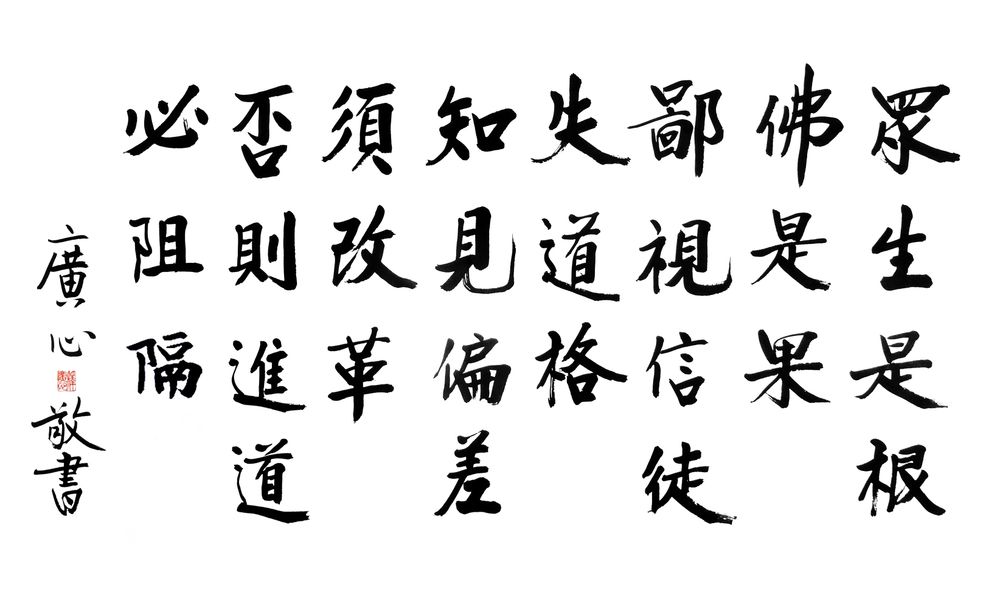 眾生是根
佛是果
鄙視信徒
失道格
知見偏差
須改革
否則進道
必阻隔
廣心
敬書